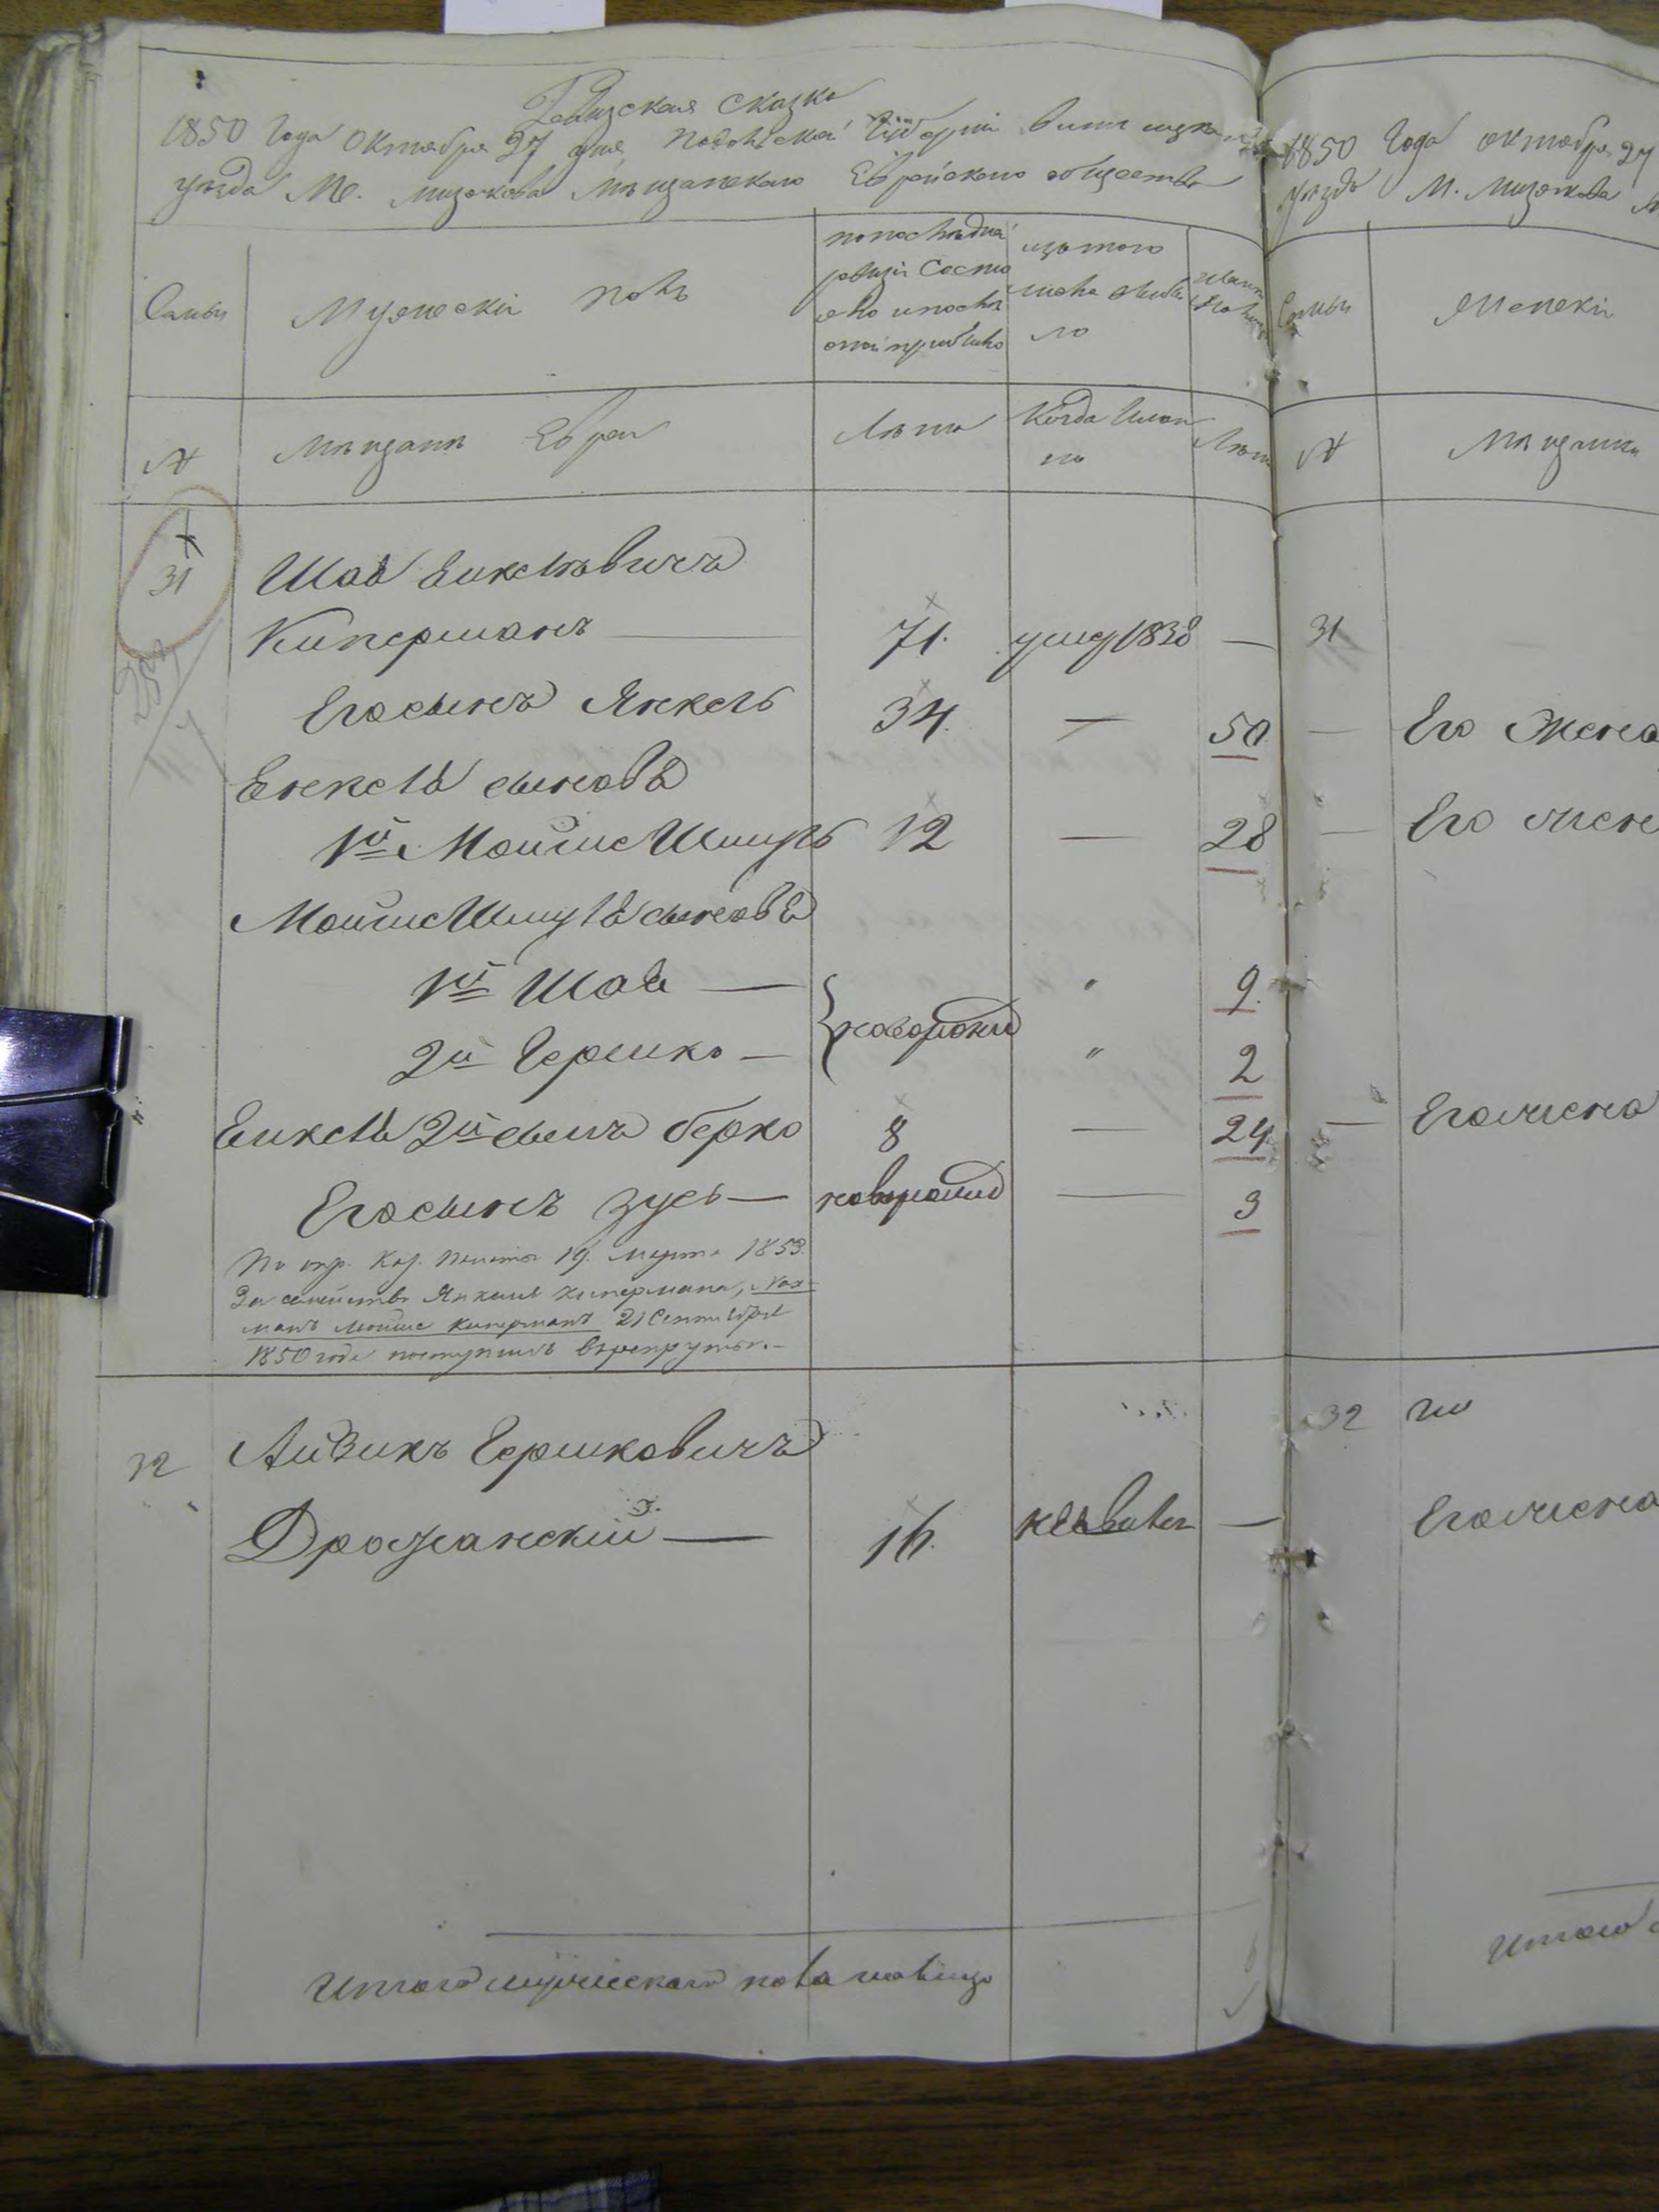 Ревизская сказка
1850 Года Октября 27 дня Подольской Губернии Винницкаго
уезда М. Мизякова Мѣщанскаго Еврейскаго общества
Семьи
Мужескій полъ
по последней
ревизіи состо
яло и после
оной прибыло
изъ того
числа выбы
ло
Ныне
на лицо
№
Мѣщане Евреи
Лѣта
Когда имен
но
Лѣта
31 Шая Янкелевичъ
Киперманъ 71. умер 1838 —
Его сынъ Янкель 34. — 50
Янкеля сыновья
1й Мойше Шмуль 12 — 28
Мойше Шмуля сыновья
1й Шая — новорожден " 9.
2й Гершко — " 2
Янкеля 2й сынъ Берко 8 — 24
Его сынъ Зусь — новорожден — 3
По опр. Каз. Палаты 19. Марта 1853.
За семейство Янкеля Кипермана, Нах-
манъ Мойше Киперманъ 21 Сентября
1850 года поступилъ въ рекруты.—
32 Айзикъ Гершковичъ
Дрожанскій — 16. —
Итого мужескаго пола налицо
1850 Года октября 27
Уезда М. Мизякова
Семьи
Женскій
№
Мѣщанки
31
— Его жена
— Его жена
— Его жена
32
Его жена
Итого